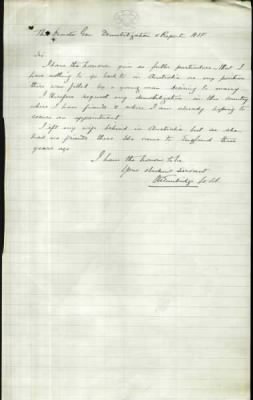 Sir
I have the honour give as further particulars that I
have nothing to go back to in Australia as my position
there was filled by a young man
I therefore request my demobilization in this country
where I have friends & where I am already hoping to
secure an appointment
I left my wife behind in Australia but as she
had no friends there she came to England three
years ago
I have the honour to be
Your obedient servant